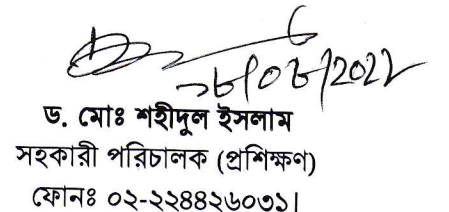 ড. মোঃ শহীদুল ইসলাম
সহকারী পরিচালক (প্রশিক্ষণ)
ফোনঃ ০২-২২৪৪২৬০৩১।